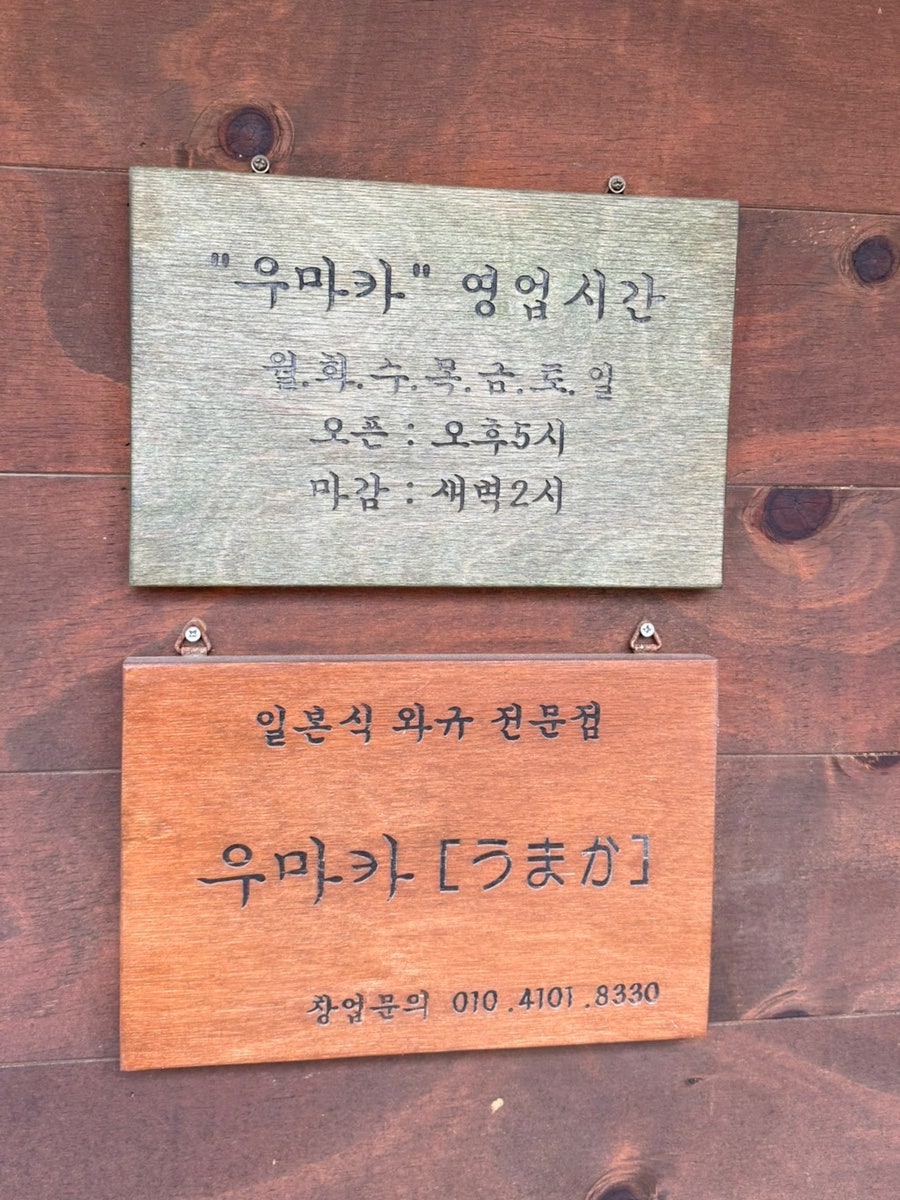 "우마카" 영업시간
월.화.수.목.금.토.일
오픈 : 오후5시
마감 : 새벽2시
일본식 와규 전문점
우마카 [うまか]
창업문의 010.4101.8330